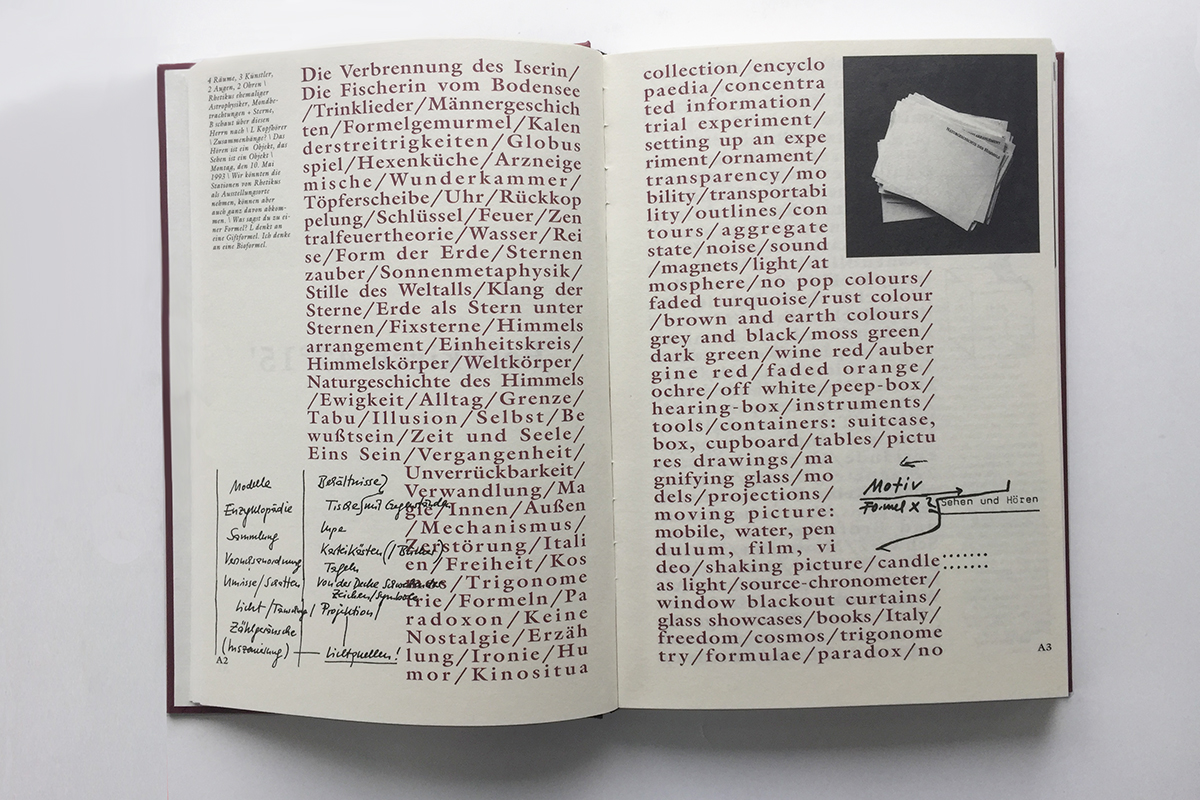 4 Räume, 3 Künstler,
2 Augen, 2 Ohren \
Rhetikus ehemaliger
Astrophysiker, Mondbe-
trachtungen + Sterne,
B schaut über diesen
Herrn nach \ L Kopfhörer
\ Zusammenhänge? \ Das
Hören ist ein Objekt, das
Sehen ist ein Objekt \
Montag, den 10. Mai
1993 \ Wir könnten die
Stationen von Rhetikus
als Ausstellungsorte
nehmen, können aber
auch ganz davon abkom-
men. \ Was sagst du zu ei-
ner Formel? L denkt an
eine Giftformel. Ich denke
an eine Bioformel.
Die Verbrennung des Iserin/
Die Fischerin vom Bodensee
/Trinklieder/Männergeschich
ten/Formelgemurmel/Kalen
derstreitrigkeiten/Globus
spiel/Hexenküche/Arzneige
mische/Wunderkammer/
Töpferscheibe/Uhr/Rückkop
pelung/Schlüssel/Feuer/Zen
tralfeuertheorie/Wasser/Rei
se/Form der Erde/Sternen
zauber/Sonnenmetaphysik/
Stille des Weltalls/Klang der
Sterne/Erde als Stern unter
Sternen/Fixsterne/Himmels
arrangement/Einheitskreis/
Himmelskörper/Weltkörper/
Naturgeschichte des Himmels
/Ewigkeit/Alltag/Grenze/
Tabu/Illusion/Selbst/Be
wußtsein/Zeit und Seele/
Eins Sein/Vergangenheit/
Unverrückbarkeit/
Verwandlung/Ma
gie/Innen/Außen
/Mechanismus/
Zerstörung/Itali
en/Freiheit/Kos
mos/Trigonome
trie/Formeln/Pa
radoxon/Keine
Nostalgie/Erzäh
lung/Ironie/Hu
mor/Kinositua
Modelle
Enzyklopädie
Sammlung
Versuchsanordnung
Umrisse/Schatten
Licht/
(Inszenierung)
Behältnisse
Tische mit
Lupe
Karteikästen
Tafeln
von der Decke
Zeichen/Symbole
Projektion/
Lichtquellen!
A2
collection/encyclo
paedia/concentra
ted information/
trial experiment/
setting up an expe
riment/ornament/
transparency/mo
bility/transportabi
lity/outlines/con
tours/aggregate
state/noise/sound
/magnets/light/at
mosphere/no pop colours/
faded turquoise/rust colour
/brown and earth colours/
grey and black/moss green/
dark green/wine red/auber
gine red/faded orange/
ochre/off white/peep-box/
hearing-box/instruments/
tools/containers: suitcase,
box, cupboard/tables/pictu
res drawings/ma
gnifying glass/mo
dels/projections/
moving picture:
mobile, water, pen
dulum, film, vi
deo/shaking picture/candle
as light/source-chronometer/
window blackout curtains/
glass showcases/books/Italy/
freedom/cosmos/trigonome
try/formulae/paradox/no
Motiv
Formel X?
Sehen und Hören
A3